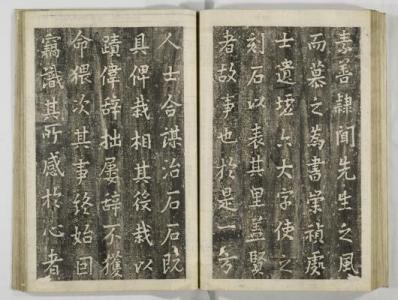 素善隸聞先生之風
而慕之為書崇禎處
士遺墟六大字使之
刻石以表其里蓋賢
者故事也於是一方
人士合謀治石石既
具俾栽相其役栽以
蹟偉辭拙屢辭不獲
命猥次其事終始因
竊識其所感於心者